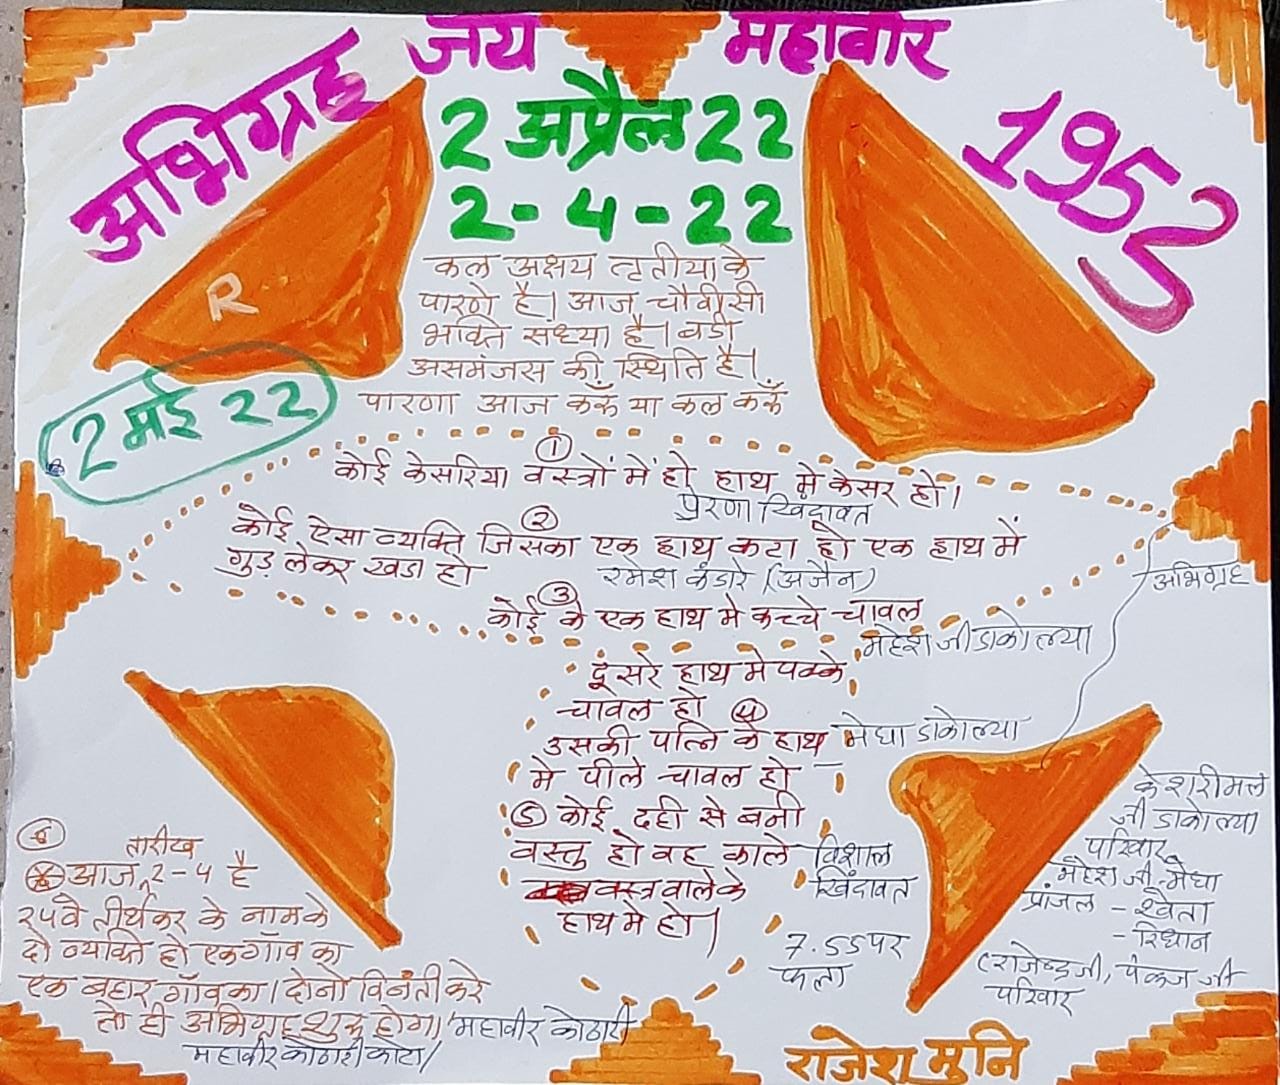 जय महावीर
अभिग्रह
1952
2 अप्रैल 22
2-4-22
R
2 मई 22
कल अक्षय तृतीया के
पारणे है। आज चौवीसी
भक्ति संध्या है। बडी
असमंजस की स्थिति है।
पारणा आज करूँ या कल करूँ
①
कोई केसरिया वस्त्रों में हो हाथ मे केसर हो।
प्रेरणा खिंदावत
②
कोई ऐसा व्यक्ति जिसका एक हाथ कटा हो एक हाथ में
गुड़ लेकर खडा हो
रमेश कंडारे (अजैन)
अभिग्रह
③
कोई के एक हाथ मे कच्चे चावल
महेश जी डाकोल्या
दूसरे हाथ मे पक्के
चावल हो ④
उसकी पत्नि के हाथ मेघा डाकोल्या
मे पीले चावल हो
⑤ कोई दही से बनी
वस्तु हो वह काले
वस्त्र वाले के
हाथ मे हो।
विशाल
खिंदावत
7.55 पर
फला
केशरीमल
जी डाकोल्या
परिवार
महेश जी-मेघा
प्रांजल - श्वेता
- रिधान
(राजेन्द्र जी, पंकज जी
परिवार
⑥
तारीख
आज 2-4 है
२५वे तीर्थंकर के नाम के
दो व्यक्ति हो एक गाँव का
एक बहार गाँव का। दोनो विनंती करे
तो ही अभिग्रह शुरू होगा। महावीर कोठारी
महावीर कोठारी कोटा/
राजेश मुनि